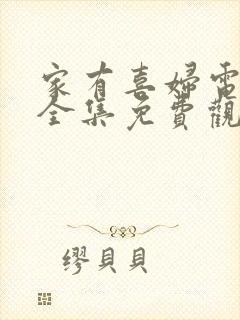 家有喜婦電
全集免費觀
繆貝貝